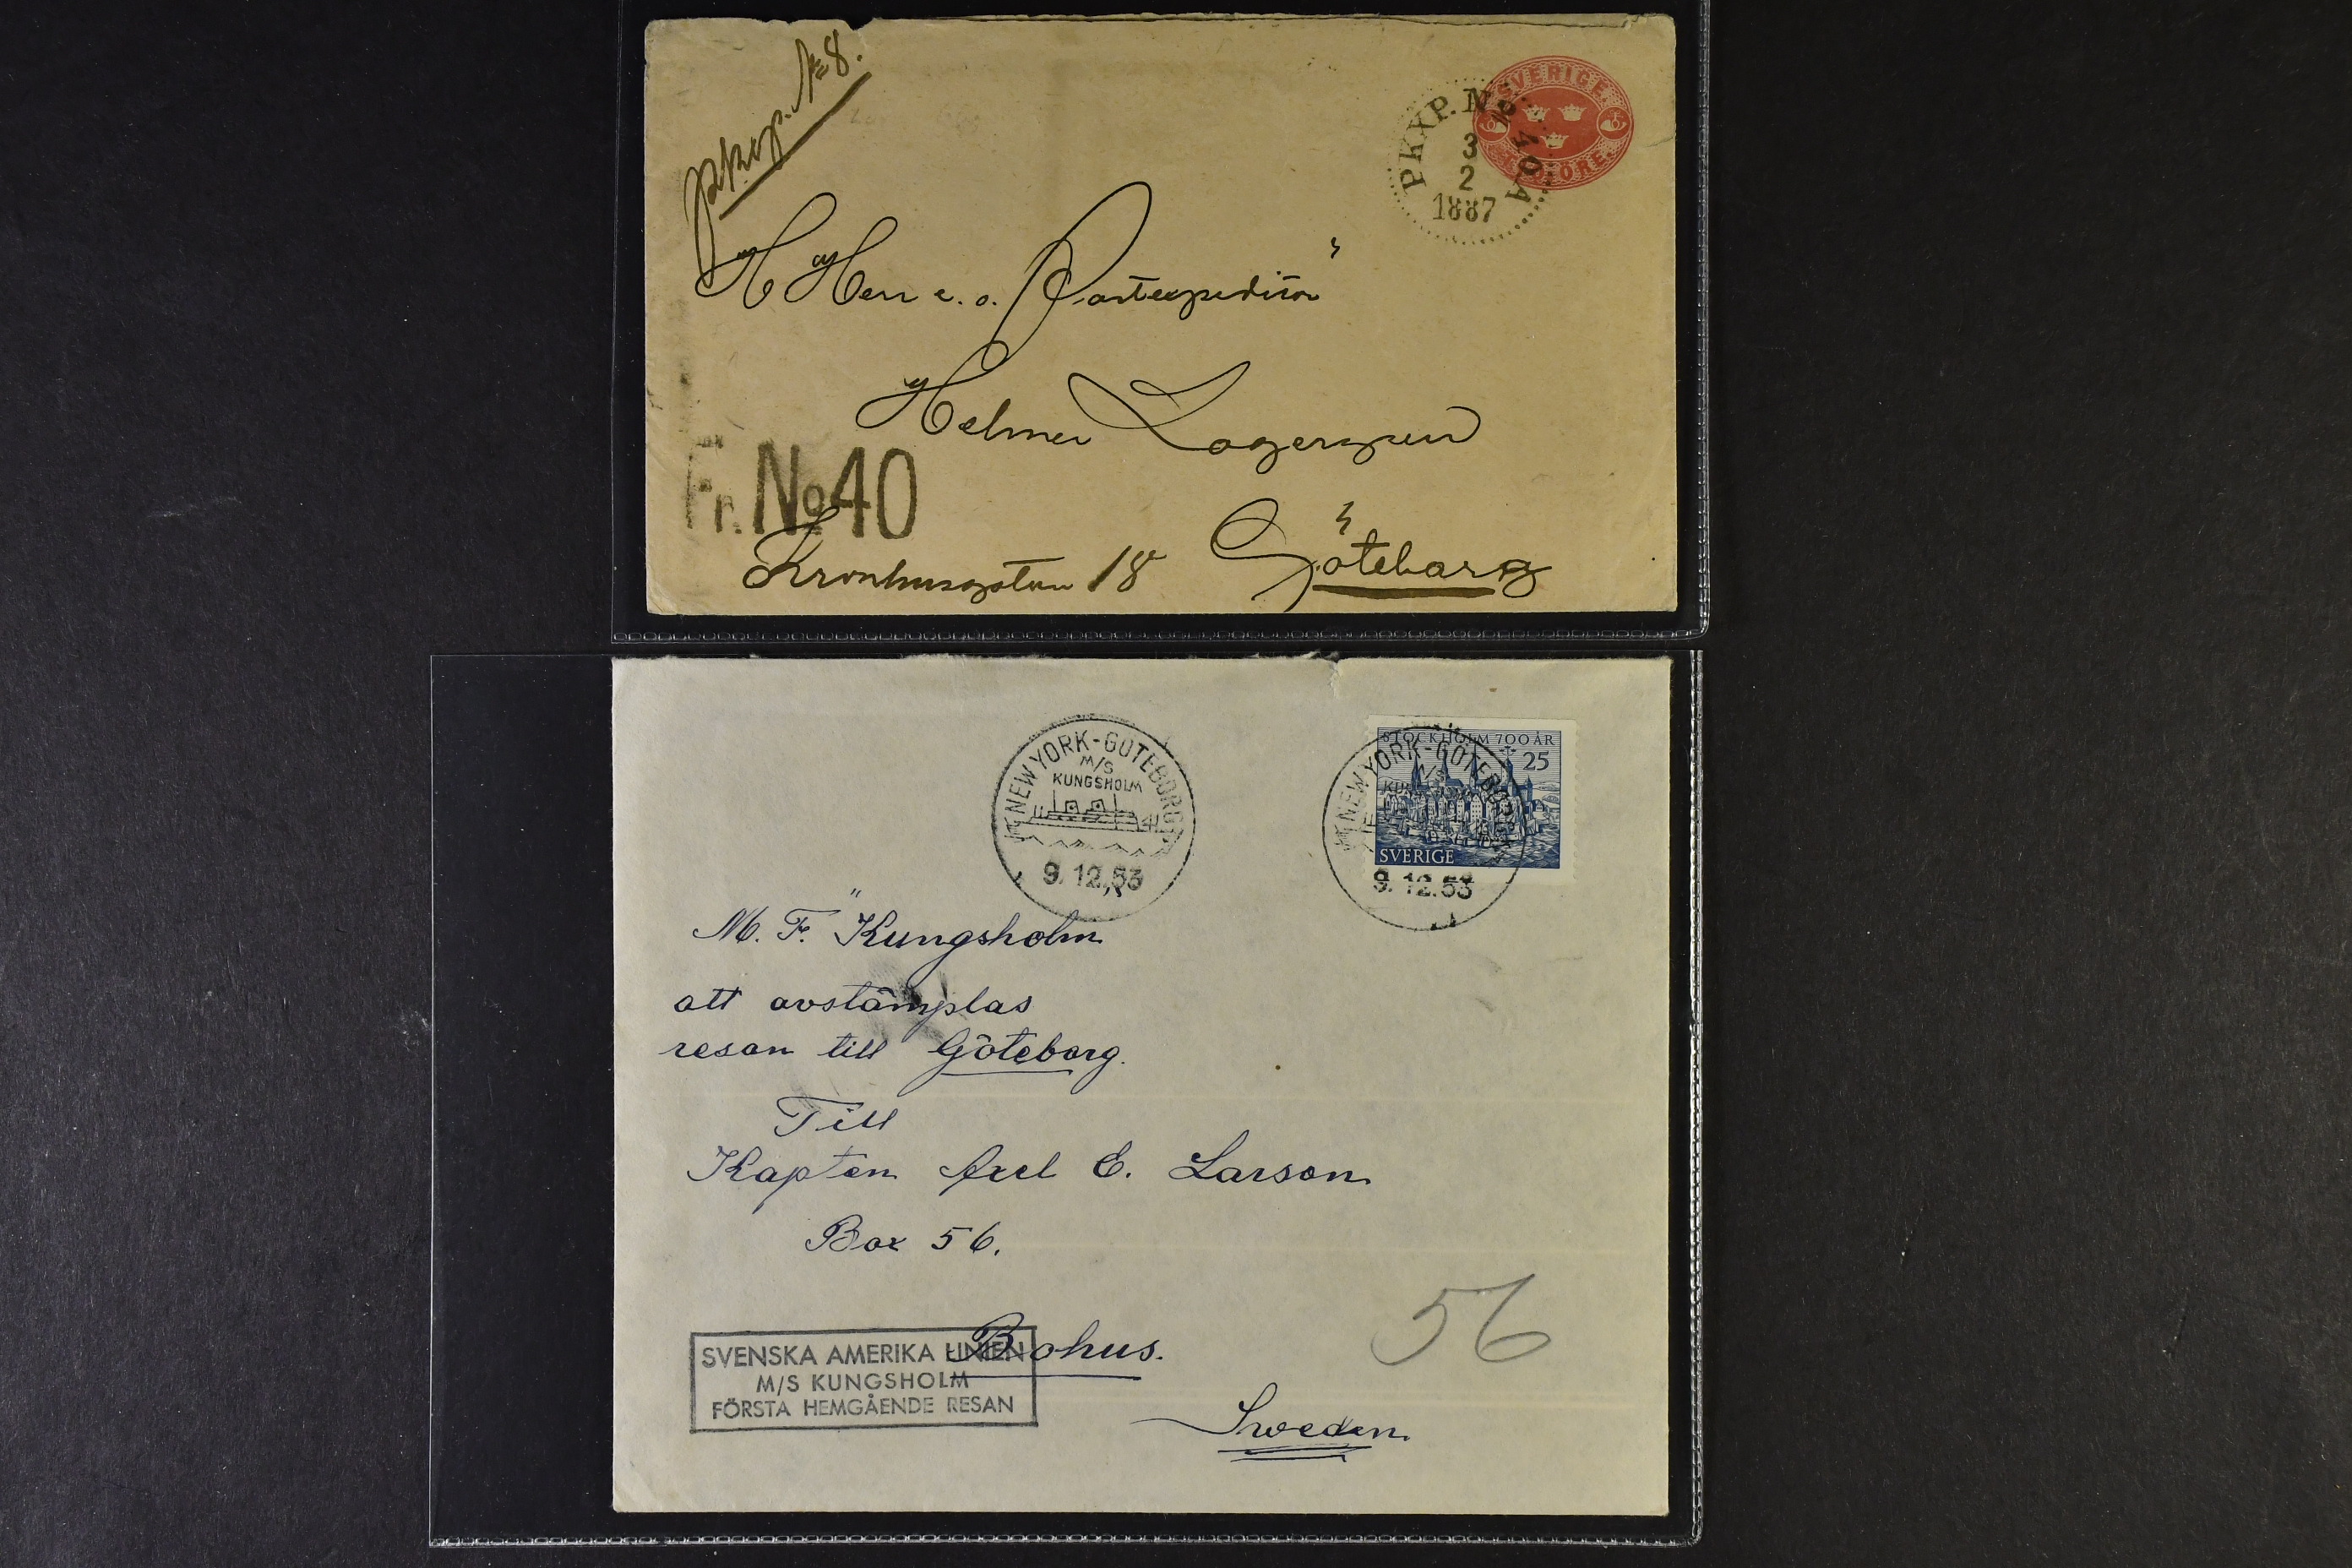 pkxp. No 8.
SVERIGE
TIO ÖRE
PKXP. No 40 A
3
2
1887
Herr e. o. Postexpeditör
Helmer Lagergren
Fr. No 40
Kronhusgatan 18 Göteborg
NEW YORK-GÖTEBORG
M/S
KUNGSHOLM
9.12.53
STOCKHOLM 700 ÅR
25
SVERIGE
NEW YORK-GÖTEBORG
9.12.53
M. F. "Kungsholm
att avstämplas
resan till Göteborg.
Till
Kapten Axel E. Larson
Box 56.
Bohus.
56
SVENSKA AMERIKA LINIEN
M/S KUNGSHOLM
FÖRSTA HEMGÅENDE RESAN
Sweden.